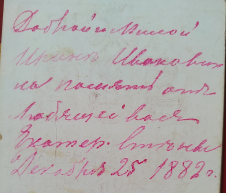 Доброй и Милой
Ирине Ивановне
на память отъ
Любящей васъ
Екатер.
Декабря 25 1882 г.